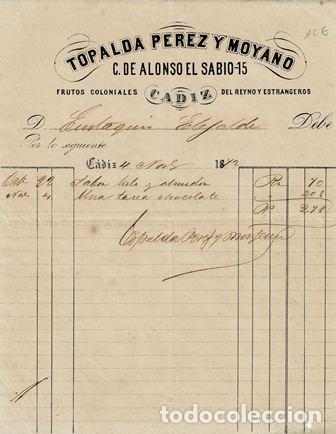 10€
TOPALDA PEREZ Y MOYANO
C. DE ALONSO EL SABIO-15
FRUTOS COLONIALES CADIZ DEL REYNO Y ESTRANGEROS
D. Eustaquio Debe
Por lo siguiente
Cádiz 4 Nov 1872
Oct 22 hilo y almidon Rv 70
Nov 4 Una tarea chocolate 208
Rv 278
Topalda Perez y Moyano
todocoleccion.net